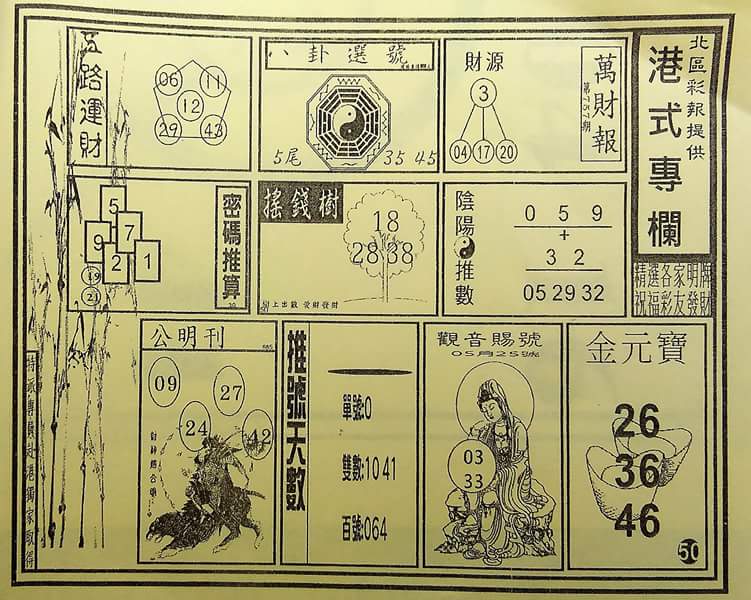 北區彩報提供
港式專欄
精選各家明牌
祝福彩友發財
萬財報
第757期
財源
3
04 17 20
八卦選號
5尾
35 45
五路運財
06 11
12
29 43
陰陽推數
0 5 9
+
3 2
05 29 32
搖錢樹
18
28 38
密碼推算
5
9 7
2 1
19
21
金元寶
26
36
46
50
觀音賜號
05月25號
03
33
推號天數
單號:0
雙數:10 41
百號:064
公明刊
09
27
24
42